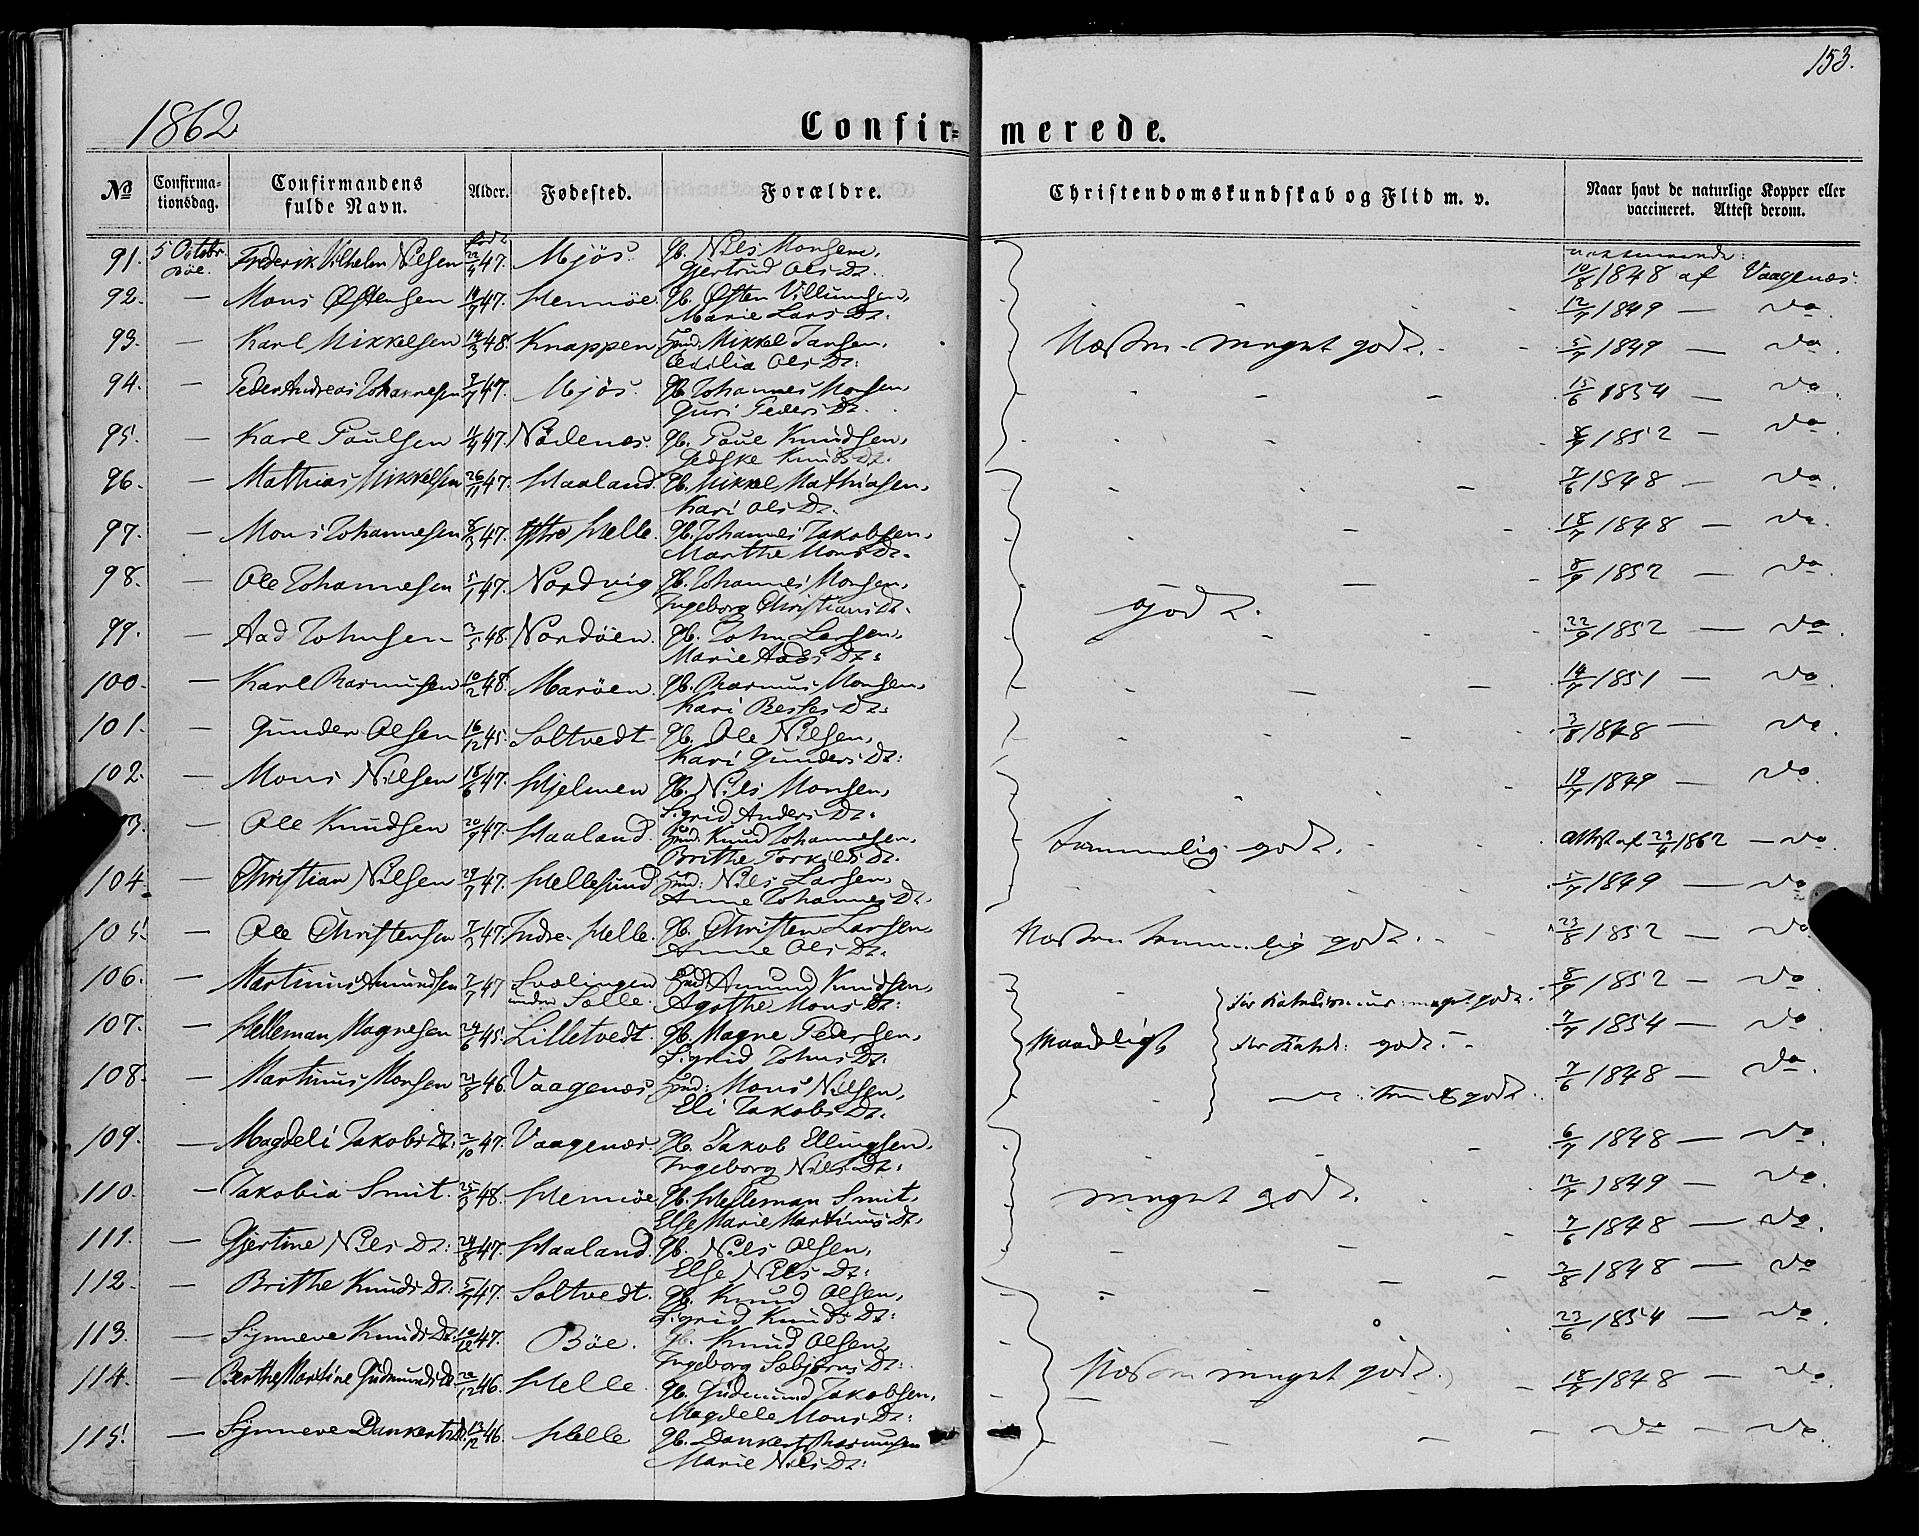 153.
1862
Confirmerede.
No Confirmationsdag. Confirmandens fulde Navn. Alder. Fødested. Forældre. Christendomskundskab og Flid m. v. Naar havt de naturlige Kopper eller vaccineret. Attest derom.
91. 5 Octobr. Bøe. Frederik Vilhelm Nilsen født 22/4 47. Mjøs. Gb. Nils Monsen, 10/8 1848 af Vaagenæs.
Gjertrud Ols Dt:
92. — Mons Østensen 47. Hennøe. Gb. Østen Villumsen, 12/7 1849 — do
Marie Lars Dt:
93. — Karl Mikkelsen 14/3 48. Knappen Mikkel Jansen, Næsten meget godt. 5/7 1849 — do
Cecilia Ols Dt:
94. — Peder Andreas Johannesen 47. Mjøs. Gb. Johannes Monsen, 15/6 1854 — do
Guri Peders Dt.
95. — Karl Poulsen 47. Nødenes. Gb. Poul Knudsen, 1852 — do
Gedske Knuds Dt.
96. — Mathias Mikkelsen 26/11 47. Haaland. Gb. Mikkel Mathiasen, 7/6 1848 — do
Kari Ols Dt.
97. — Mons Johannesen 8/3 47. Yttre Helle. Gb. Johannes Jakobsen, 18/7 1848 — do
Marthe Mons Dt.
98. — Ole Johannesen 5/1 47. Nordvig Gb. Johannes Monsen, 8/9 1852 — do
Ingeborg Christians Dt. Godt.
99. — Aad Johnsen 48. Nordøen. Gb. John Larsen, 22/9 1852 — do
Marie Aads Dt:
100. — Karl Rasmusen 10/2 48. Marøen. Gb. Rasmus Monsen, 14/7 1851 — do
Kari Besses Dt:
101. — Gunder Olsen 16/12 45. Soltvedt. Gb. Ole Nilsen, 3/8 1848 — do
Kari Gunders Dt:
102. — Mons Nilsen 18/6 47. Hjelmen Gb. Nils Monsen, 19/7 1849 — do
Sigrid Anders Dt:
3. — Ole Knudsen 20/9 47. Haaland. Knud Johannesen, Temmelig godt. Attest af 23/4 1862 — do
Brithe Torkilds Dt.
104. — Christian Nilsen 29/7 47. Hellesund Nils Larsen, 5/7 1849 — do
Anne Johannes Dt.
105. — Ole Christensen 7/3 47. Indre Helle. Gb. Christen Larsen, Næsten temmelig godt. 23/8 1852 — do
Anne Ols Dt.
106. — Martinus Amundsen 7/7 47 Svalingen Amund Knudsen, 8/9 1852 — do
under Solle. Agathe Mons Dt:
107. — Helleman Magnesen 24/6 45. Lilletvedt. Gb. Magne Pedersen, Maadeligt godt. 7/7 1854 — do
Sigrid Johns Dt:
108. — Martinus Monsen 21/8 46. Vaagenæs Mons Nilsen, 7/6 1848 — do
Eli Jakobs Dt:
109. — Magdeli Jakobs Dt. 2/10 47. Vaagenæs. Gb. Jakob Ellingsen. 6/7 1848 — do
Ingeborg Nils Dt:
110. — Jakobia Smit. 25/3 48. Hennøe. Gb. Helleman Smit, meget godt. 12/7 1849 — do
Else Marie Martinus Dt.
111. — Gjertine Nils Dt: 24/8 47. Haaland. Gb. Nils Olsen, 7/6 1848 — do
Else Nils Dt:
112. — Brithe Knuds Dt: 47. Soltvedt. Gb. Knud Olsen, 3/8 1848 — do
Sigrid Knuds Dt:
113. — Synneve Knuds Dt. 47. Bøe. Gb. Knud Olsen, 23/6 1854 — do
Ingeborg Sebjørns Dt:
114. — Berthe Martine Gudmunds Dt. 46. Helle. Gb. Gudmund Jakobsen, Næsten meget godt. 18/7 1848 — do
Magdele Mons Dt:
115. — Synneve Dankerts Dt. 13/12 46. Helle Gb. Dankert Rasmusen do — do
Marie Nils Dt: